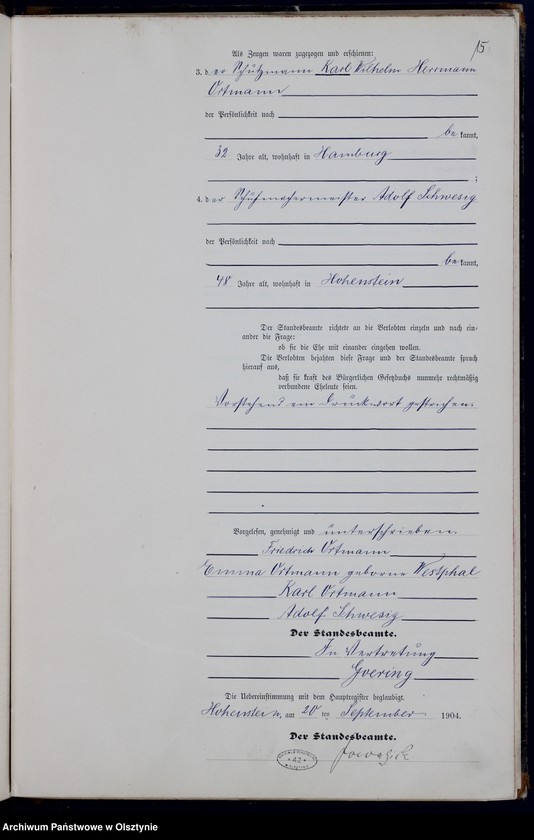 15
Als Zeugen waren zugezogen und erschienen:
3. der Schutzmann Karl Wilhelm Herrmann
Ortmann
der Persönlichkeit nach
bekannt,
32 Jahre alt, wohnhaft in Hamburg
;
4. der Schuhmachermeister Adolf Schwesig
der Persönlichkeit nach
bekannt,
48 Jahre alt, wohnhaft in Hohenstein
Der Standesbeamte richtete an die Verlobten einzeln und nach ein-
ander die Frage:
ob sie die Ehe mit einander eingehen wollen.
Die Verlobten bejahten diese Frage und der Standesbeamte sprach
hierauf aus,
daß sie kraft des Bürgerlichen Gesetzbuchs nunmehr rechtmäßig
verbundene Eheleute seien.
Vorstehend ein Druckwort gestrichen.
Vorgelesen, genehmigt und unterschrieben.
Friedrich Ortmann
Emma Ortmann geborne Westphal
Karl Ortmann
Adolf Schwesig
Der Standesbeamte.
In Vertretung
Goering
Die Uebereinstimmung mit dem Hauptregister beglaubigt.
Hohenstein, am 20 ten September 1904.
Der Standesbeamte.
Archiwum Państwowe w Olsztynie